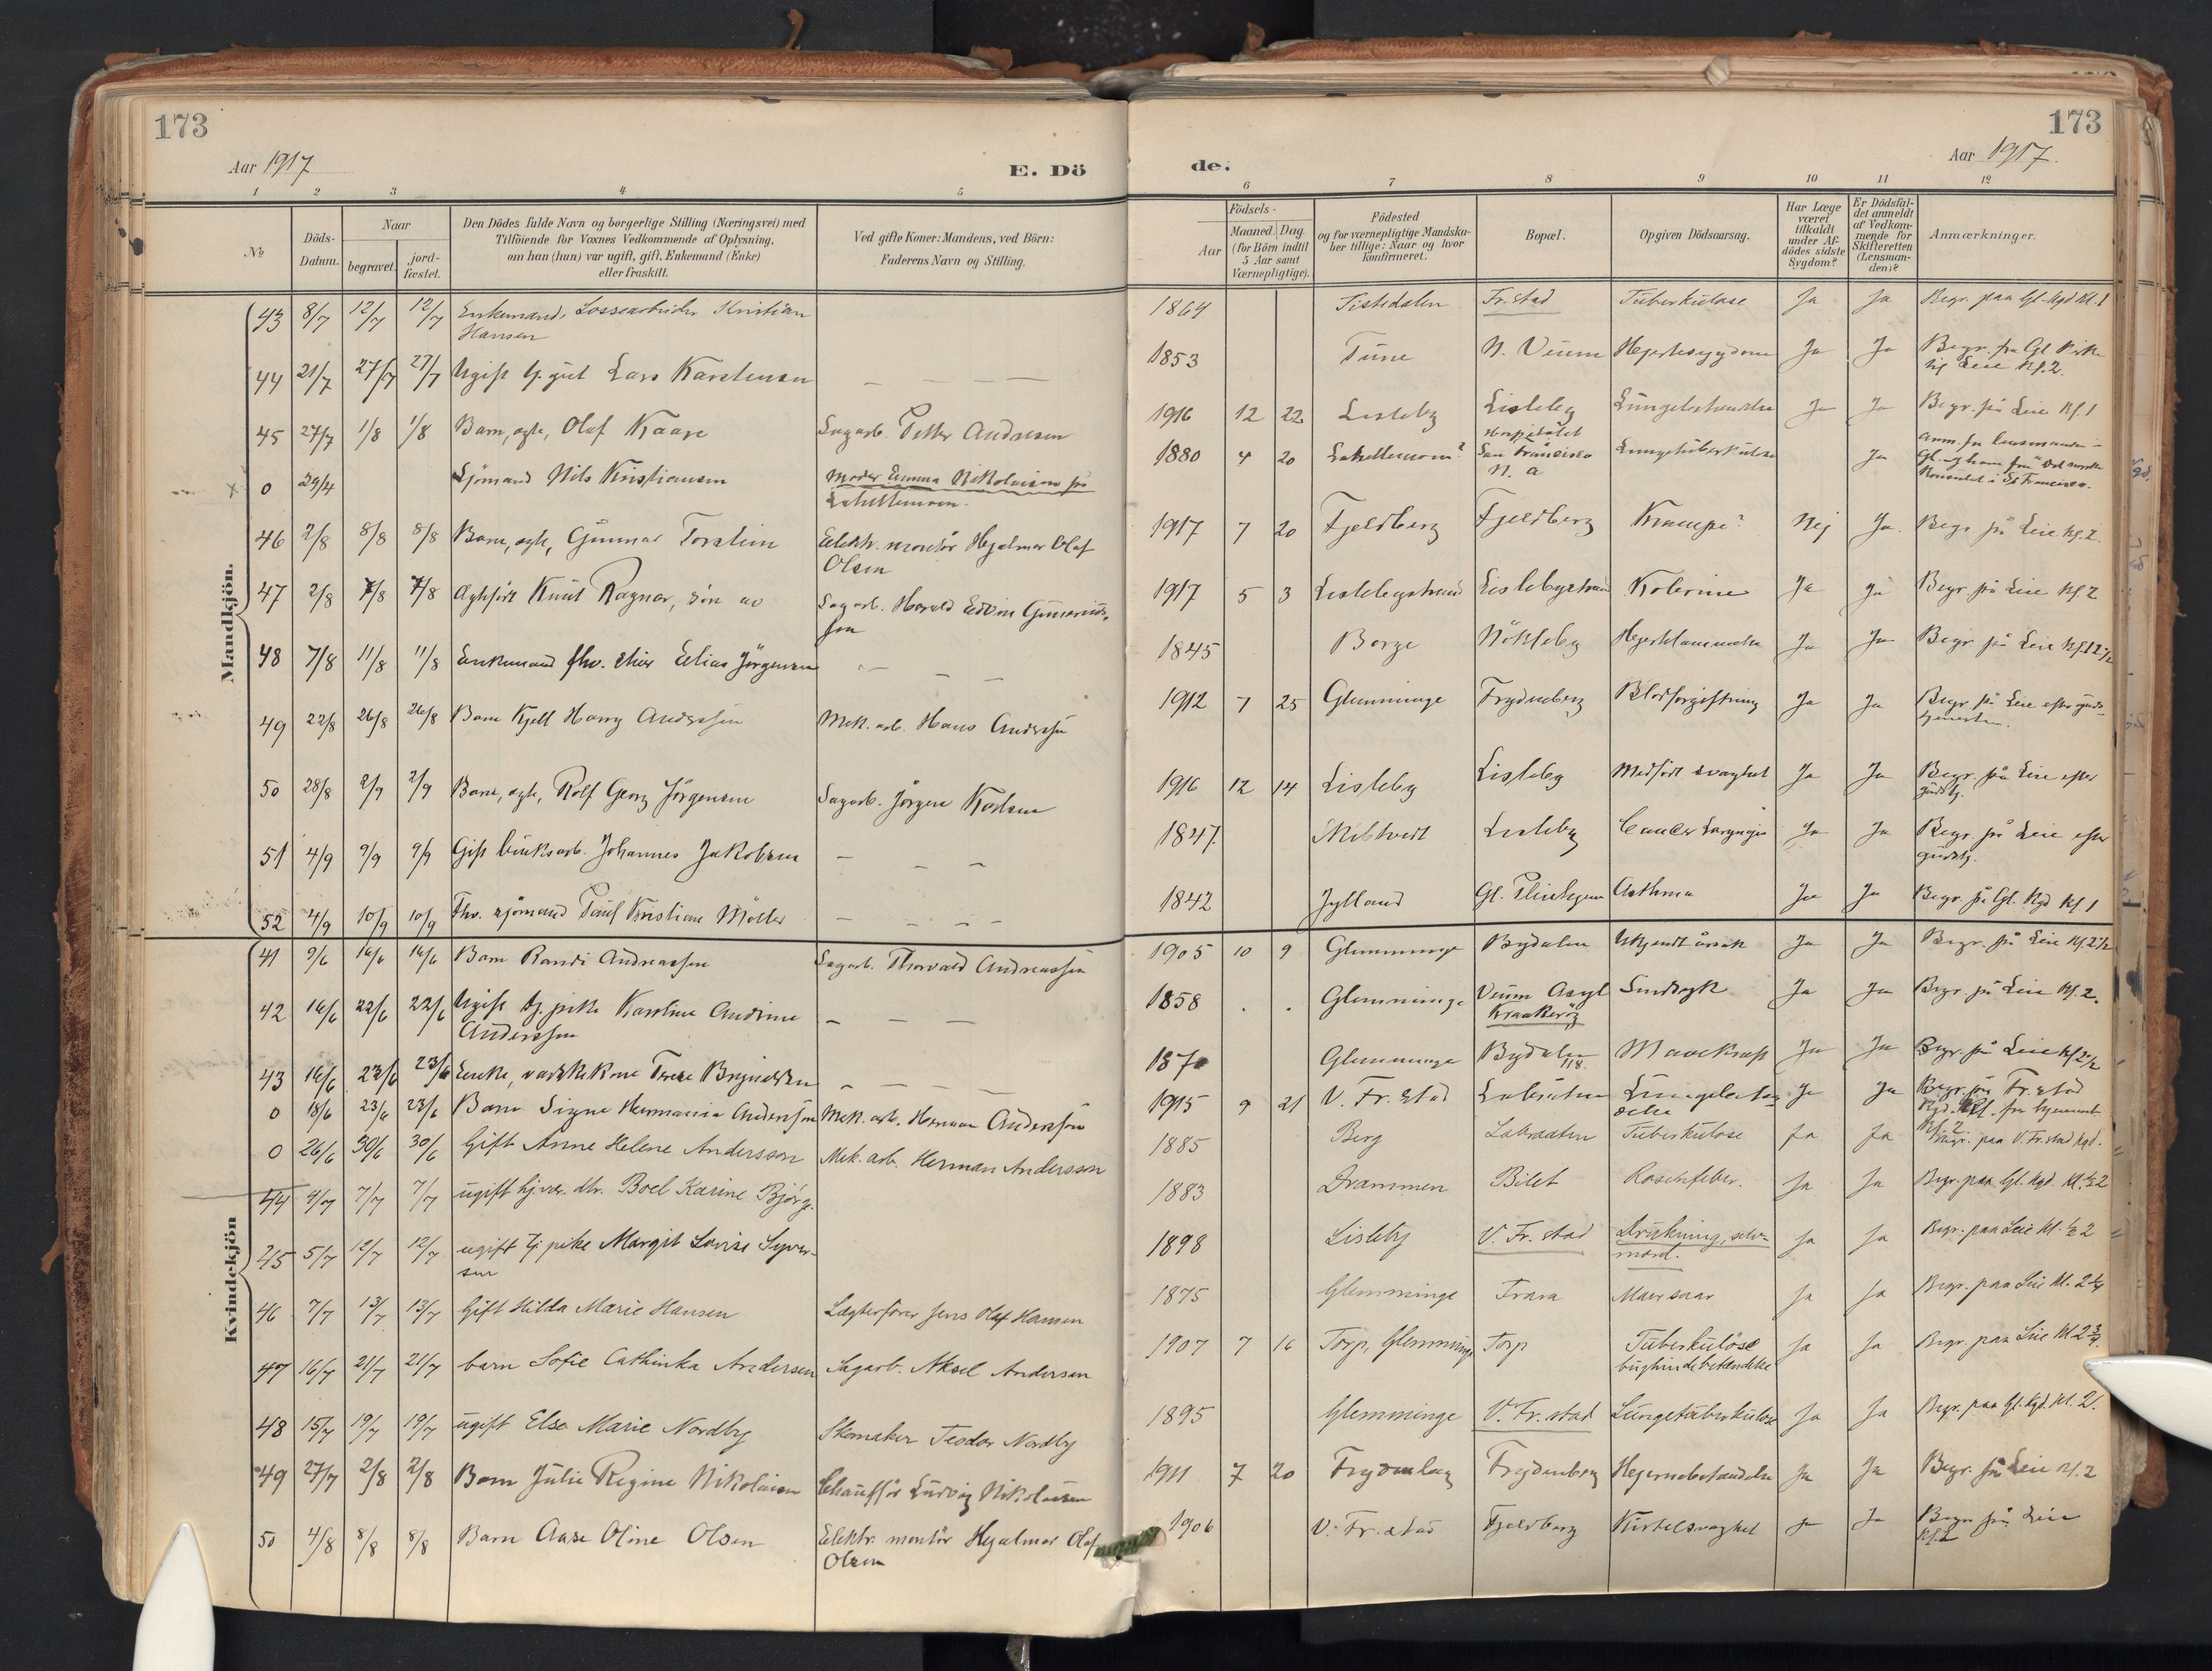 173
Aar 1917
E. Dö
1 2 3 4 5
№
Döds-
Datum.
Naar
begravet.
jord-
fæstet.
Den Dödes fulde Navn og borgerlige Stilling (Næringsvei) med
Tilföiende for Voxnes Vedkommende af Oplysning,
om han (hun) var ugift, gift, Enkemand (Enke)
eller fraskilt.
Ved gifte Koner: Mandens, ved Börn:
Faderens Navn og Stilling.
Mandkjön.
43 8/7 12/7 12/7 Enkemand, Lossearbeider Kristian
Hansen
44 21/7 27/7 27/7 Ugift Lars Karstensen
45 27/7 1/8 1/8 Barn, egte, Olaf Kaare Sagarb. Petter Andresen
0 29/4 Sjömand Nils Kristiansen Moder Emma Nikolaisen på
46 2/8 8/8 8/8 Barn, egte, Gunnar Torstein Elektr. montör Hjalmar Olaf
Olsen
47 2/8 7/8 7/8 Knut Ragnar, sön av Sagarb. Harald Edvin
48 7/8 11/8 11/8 Enkemand fhv. Elias Jörgensen
49 22/8 26/8 26/8 Barn Kjell Harry Anderssen Mek. arb. Hans Anderssen
50 28/8 2/9 2/9 Barn, egte, Rolf Georg Jörgensen Sagarb. Jörgen Karlsen
51 4/9 9/9 9/9 Gift bruksarb. Johannes Jakobsen
52 4/9 10/9 10/9 Fhv. sjömand Paul Kristian Möller
Kvindekjön
41 9/6 16/6 16/6 Barn Randi Andreassen Sagarb. Thorvald Andreassen
42 16/6 22/6 22/6 Ugift tj. pike Karoline Andrine
Anderssen
43 16/6 23/6 23/6 Enke, vaskekone Terese Brynildsen
0 18/6 23/6 23/6 Barn Signe Hermania Anderssen Mek. arb. Herman Anderssen
0 26/6 30/6 30/6 Gift Anne Helene Andersson Mek. arb. Herman Andersson
44 4/7 7/7 7/7 ugift Boel Karine Bjørg
45 5/7 12/7 12/7 ugift tj pike Margit Lovise Syver-
sen
46 7/7 13/7 13/7 Gift Hilda Marie Hansen Lægterfører Jens Olaf Hansen
47 16/7 21/7 21/7 barn Sofie Cathinka Andersen Sagarb. Aksel Andersen
48 15/7 19/7 19/7 ugift Else Marie Nordby Skomaker Teodor Nordby
49 27/7 2/8 2/8 Barn Julie Regine Nikolaisen Chaufför Ludvig Nikolaisen
50 4/8 8/8 8/8 Barn Aase Oline Olsen Elektr. montör Hjalmar Olaf
Olsen
173
Aar 1917.
de.
6 7 8 9 10 11 12
Aar
Födsels-
Maaned. Dag.
(for Börn indtil
5 Aar samt
Værnepligtige).
Födested
og for værnepligtige Mandska-
ber tillige: Naar og hvor
konfirmeret.
Bopæl.
Opgiven Dödsaarsag.
Har Læge
været
tilkaldt
under Af-
dödes sidste
Sygdom?
Er Dödsfal-
det anmeldt
af Vedkom-
mende for
Skifteretten
(Lensman-
den)?
Anmærkninger.
1864 Tistedalen Fr.stad Tuberkulose Ja Ja Begr. paa Gl. Kgd Kl. 1
1853 Tune N. Veum Hjertesygdom Ja Ja
Leie Kl. 2.
1916 12 22 Lisleby Lisleby Lungebetændelse Ja Ja Begr. på Leie Kl. 1
1880 4 20 San Francisco Lungetuberkulose Ja
N. A
1917 7 20 Fjeldberg Fjeldberg Krampe? Nej Ja. Begr på Leie Kl. 2.
1917 5 3 Lislebystrand Lislebystrand Kolerine Ja Ja Begr. på Leie Kl. 2
1845 Borge Nökleby Ja Ja Begr. på Leie
1912 7 25 Glemminge Frydenberg Blodforgiftning Ja Ja Begr på Leie efter guds-
tjenesten.
1916 12 14 Lisleby Lisleby Medfödt svaghet Ja Ja Begr. på Leie efter
gudstj.
1847. Skibtvedt Lisleby Cancer Laryngis Ja Ja Begr på Leie efter
gudstj.
1842 Jylland Asthma Ja Ja Begr. på Gl. Kgd Kl. 1
1905 10 9 Glemminge Bydalen Ukjendt årsak Ja Ja Begr. på Leie Kl. 2 1/2
1858 Glemminge Veum Asyl Sindsyk Ja Ja Begr. på Leie Kl. 2.
Kraakerøy
1870 Glemminge Bydalen Mavekræft Ja Ja Begr. på Leie Kl 2 1/2
118.
1915 9 21 V. Fr. stad Ja Ja Begr. på Fr. stad
1885 Berg Labraaten Tuberkulose Ja Ja Begr. paa V. Fr.stad kgd.
1883 Drammen Bilet Rosenfeber. Ja Ja Begr. paa Gl. Kgd.
1898 Lisleby V. Fr. stad Drukning, selv-
mord. Ja Ja Begr. paa Leie
1875 Glemminge Trara Mavesaar Ja Ja Begr. paa Leie
1907 7 16 Torp, Glemminge Torp Tuberkuløse
bughindebetændelse Ja Ja Begr. paa Leie Kl 2 3/4
1895 Glemminge V. Fr. stad Lungetuberkulose Ja Ja Begr. paa Gl. Kgd. Kl. 2.
1911 7 20 Frydenberg Frydenberg Hjernebetændelse Ja Ja Begr. på Leie Kl. 2
1906 V. Fr. stad Fjeldberg Kirtelsvaghet Ja Ja Begr på Leie
Kl. 2